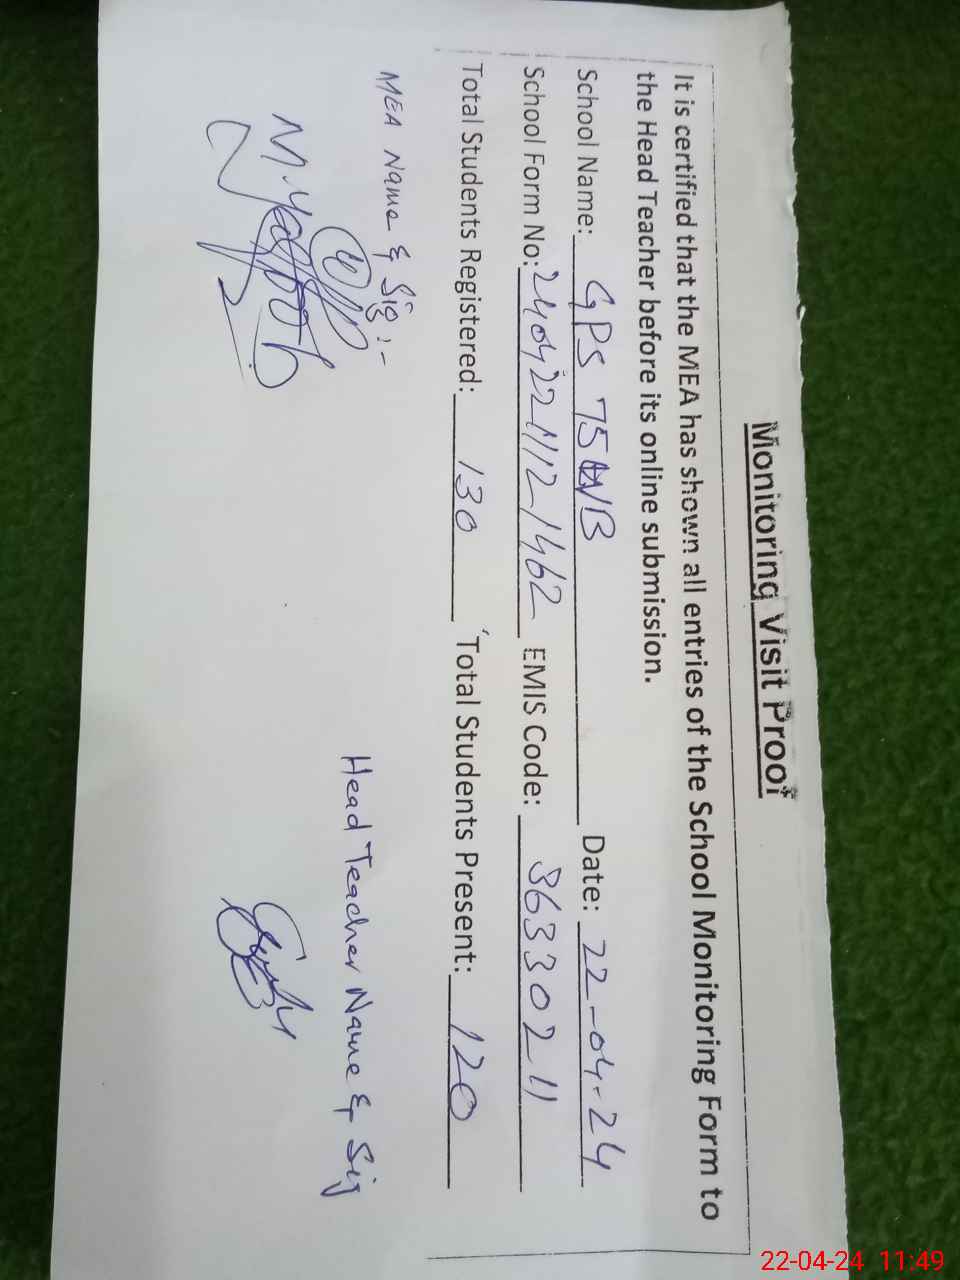 Monitoring Visit Proof
It is certified that the MEA has shown all entries of the School Monitoring Form to
the Head Teacher before its online submission.
School Name: GPS 75 WB Date: 22-04-24
School Form No: EMIS Code: 36330211
Total Students Registered: 130 Total Students Present: 120
MEA Name & Sig:-
Head Teacher Name & Sig
M. Yaqoob
22-04-24 11:49